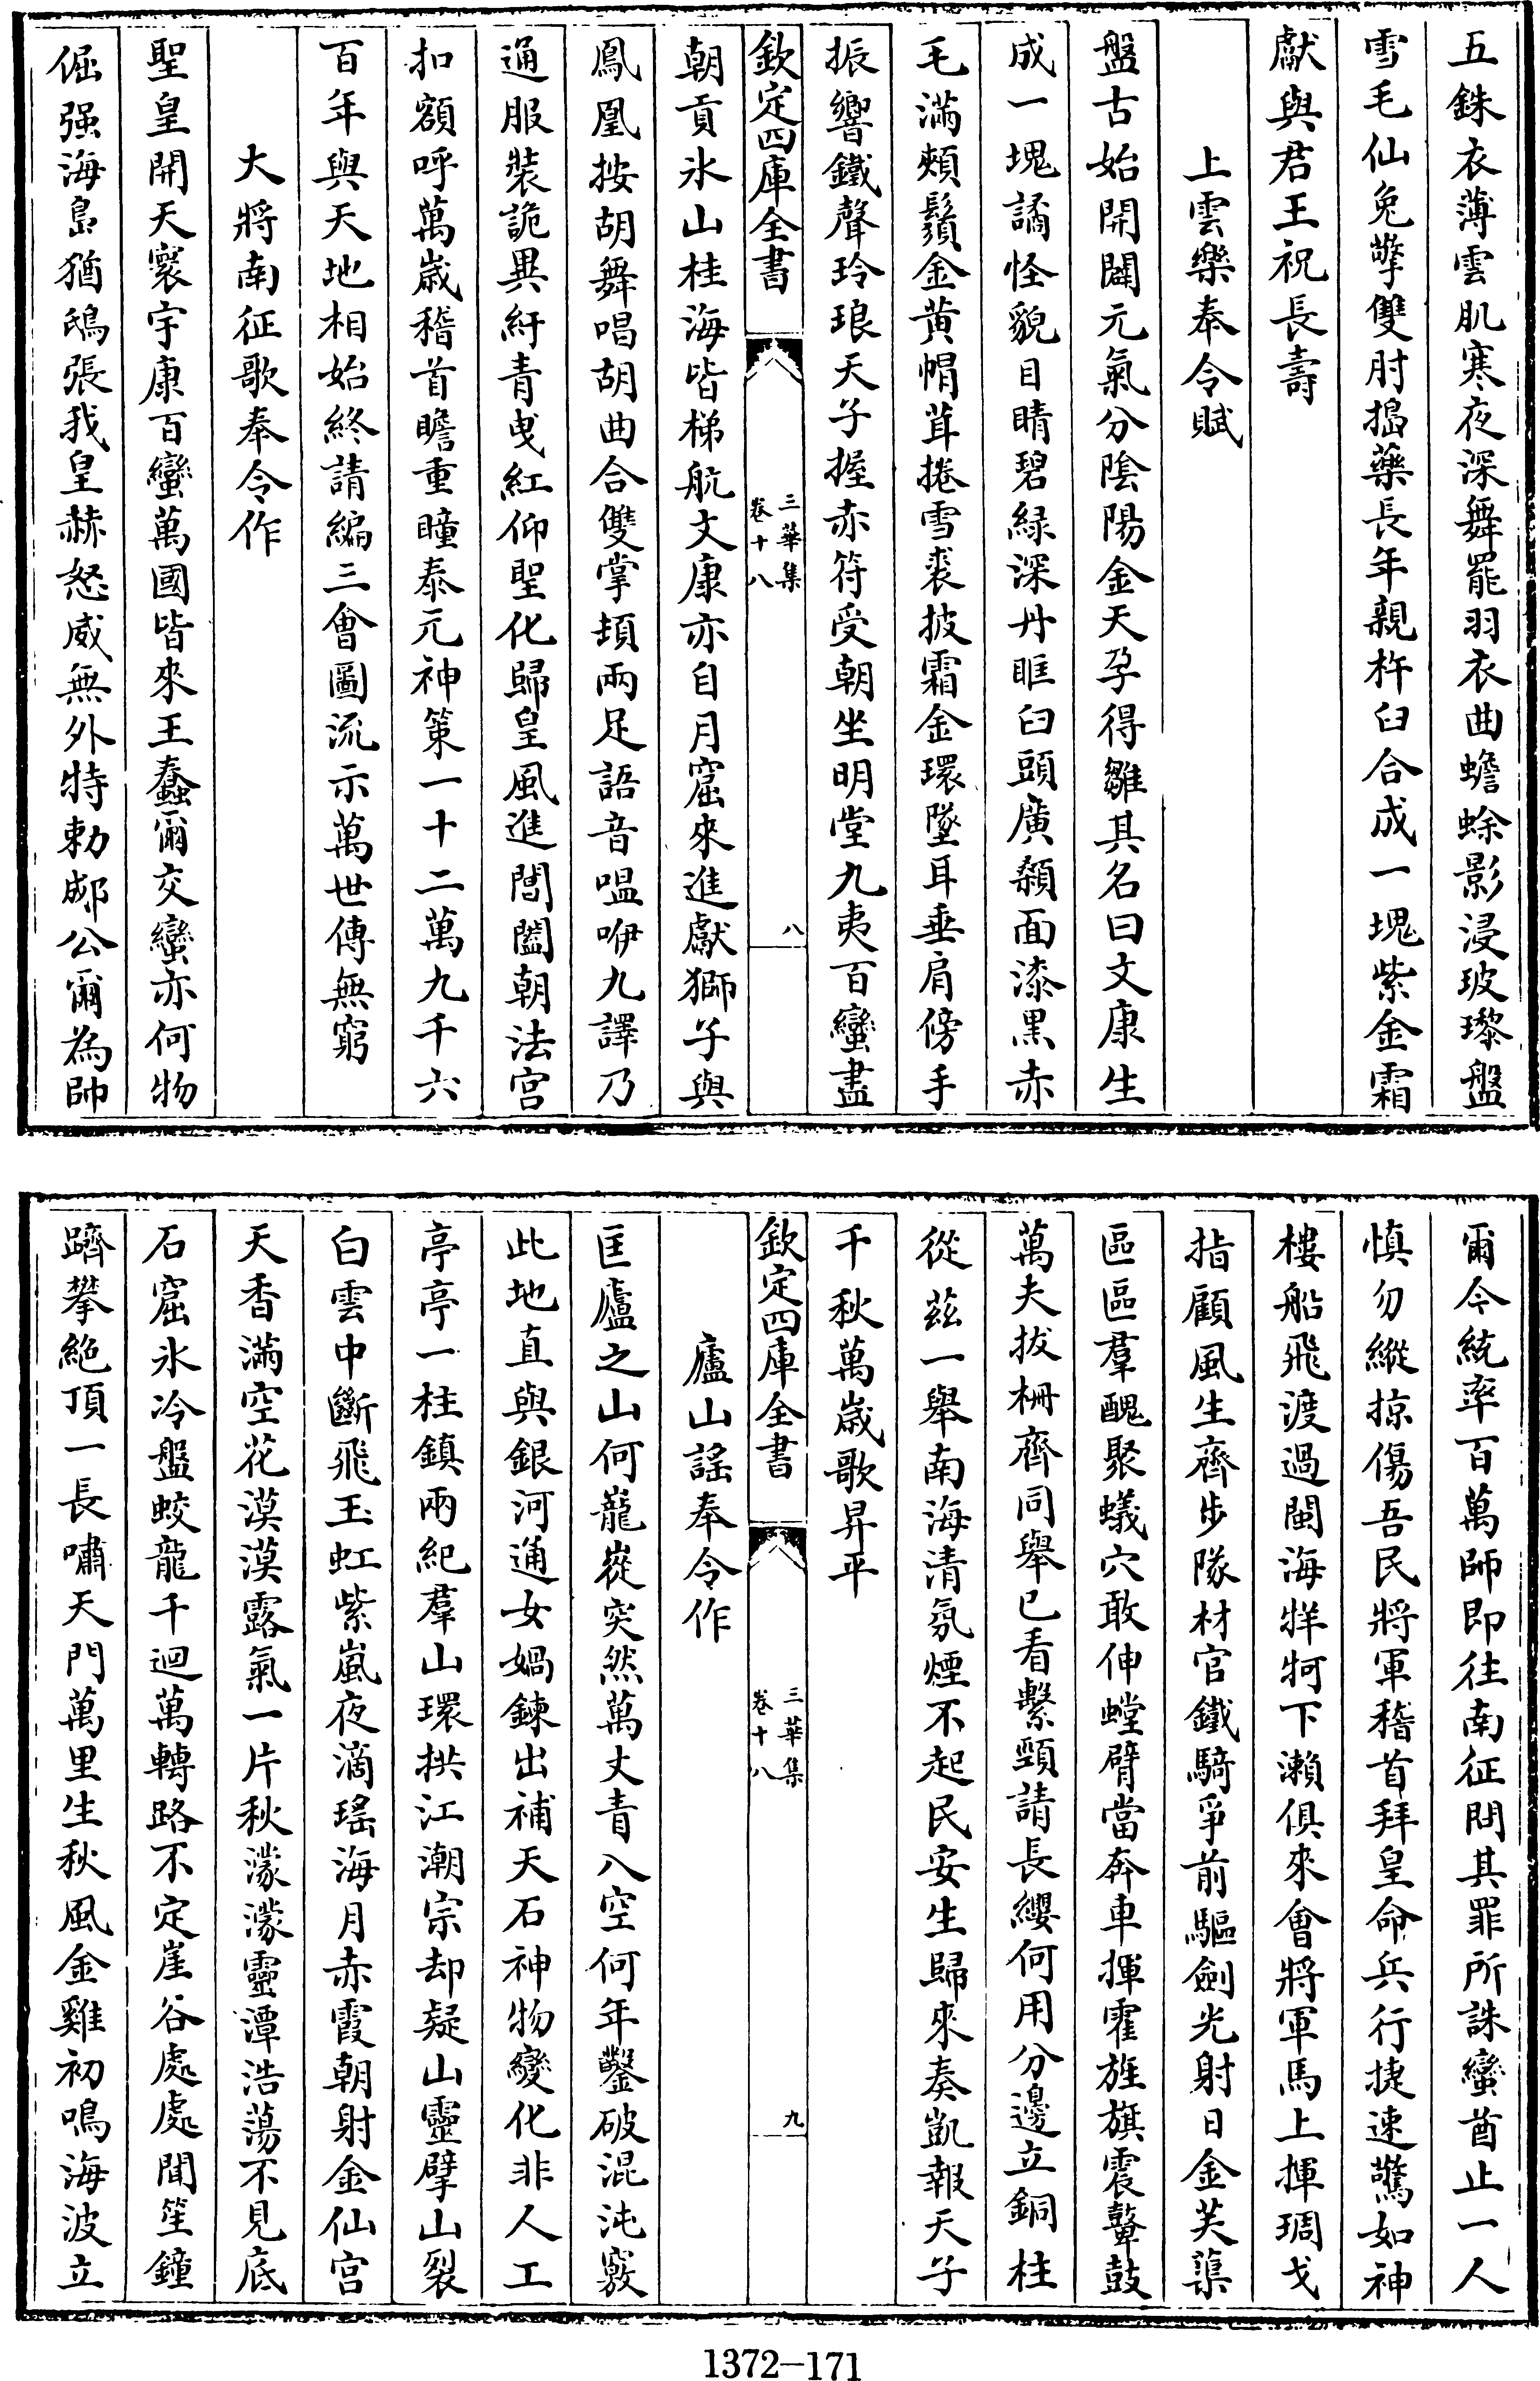 五銖衣薄雲肌寒夜深舞罷羽衣曲蟾蜍影浸玻瓈盤
雪毛仙兔擎雙肘搗藥長年親杵臼合成一塊紫金霜
獻與君王祝長壽
上雲樂奉令賦
盤古始開闢元氣分陰陽金天孕得雛其名曰文康生
成一塊譎怪貌目睛碧綠深丹眶臼頭廣顙面漆黑赤
毛滿頰鬚金黄帽茸捲雪裘披霜金環墜耳垂肩傍手
振響鐵聲玲琅天子握赤符受朝坐明堂九夷百蠻盡
欽定四庫全書
三華集
卷十八
八
朝貢氷山桂海皆梯航文康亦自月窟來進獻獅子與
鳳凰按胡舞唱胡曲合雙掌頓兩足語音嗢咿九譯乃
通服裝詭異紆青曳紅仰聖化歸皇風進閶闔朝法宫
扣額呼萬嵗稽首瞻重瞳泰元神策一十二萬九千六
百年與天地相始終請編三會圖流示萬世傳無窮
大將南征歌奉令作
聖皇開天寰宇康百蠻萬國皆來王蠢爾交蠻亦何物
倔强海島猶鴟張我皇赫怒威無外特勅郕公爾為帥
爾今統率百萬師即往南征問其罪所誅蠻酋止一人
慎勿縱掠傷吾民將軍稽首拜皇命兵行捷速驚如神
樓船飛渡過閩海牂牁下瀨俱來會將軍馬上揮琱戈
指顧風生齊步隊材官鐵騎爭前驅劍光射日金芙蕖
區區羣醜聚蟻穴敢伸螳臂當奔車揮霍旌旗震鼙鼓
萬夫拔柵齊同舉已看繫頸請長纓何用分邊立銅柱
從茲一舉南海清氛煙不起民安生歸來奏凱報天子
千秋萬嵗歌昇平
欽定四庫全書
三華集
卷十八
九
廬山謠奉令作
匡廬之山何巃嵸突然萬丈青八空何年鑿破混沌竅
此地直與銀河通女媧鍊出補天石神物變化非人工
亭亭一柱鎮兩紀羣山環拱江潮宗却疑山靈擘山裂
白雲中斷飛玉虹紫嵐夜滴瑤海月赤霞朝射金仙宫
天香滿空花漠漠露氣一片秋濛濛靈潭浩蕩不見底
石窟氷冷盤蛟龍千迴萬轉路不定崖谷處處聞笙鐘
躋攀絶頂一長嘯天門萬里生秋風金雞初鳴海波立
1372-171